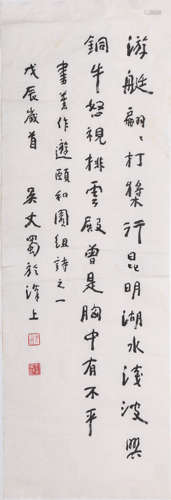 游艇翩〻打槳行昆明湖水淺波興
銅牛怒視排雲殿曾是胸中有不平
書舊作遊頤和園組詩之一
戊辰歲首 吳丈蜀於漢上